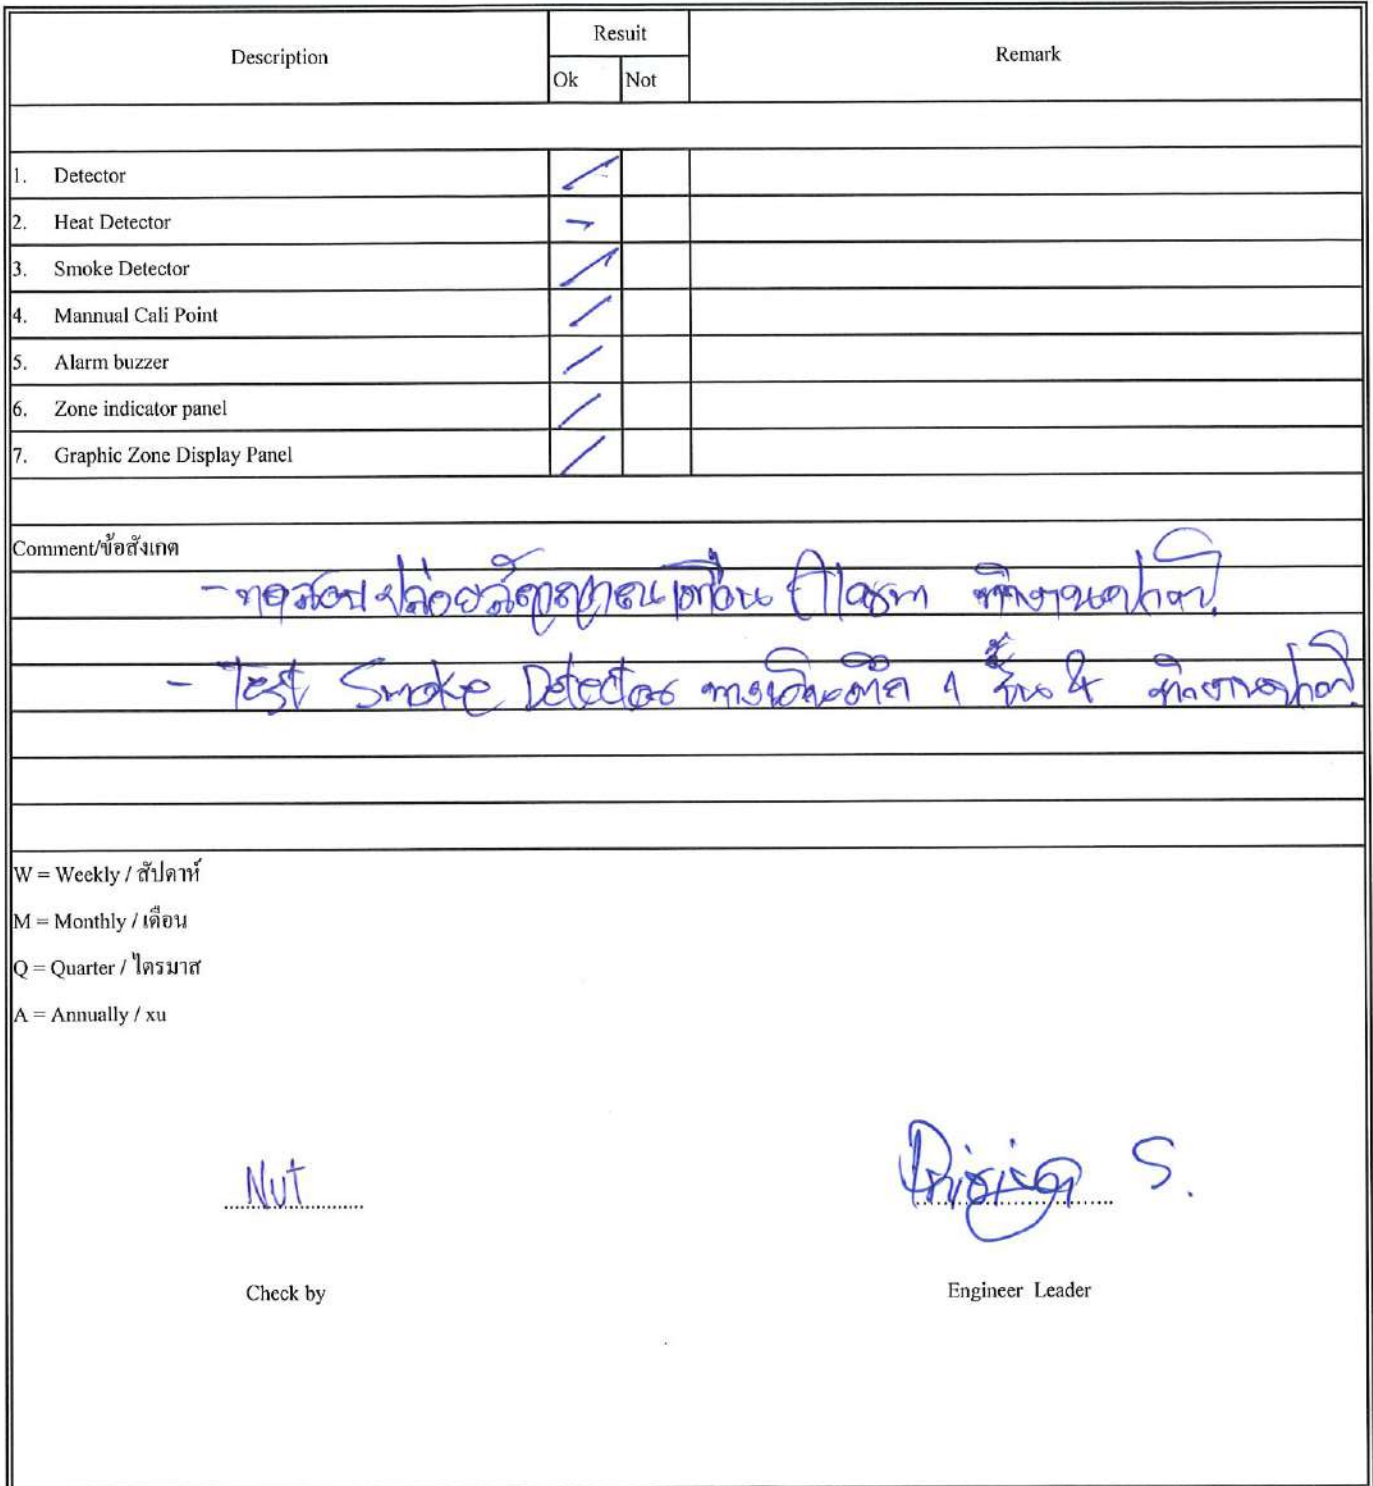 Description Resuit Remark
Ok Not
1. Detector /
2. Heat Detector -
3. Smoke Detector /
4. Mannual Cali Point /
5. Alarm buzzer /
6. Zone indicator panel /
7. Graphic Zone Display Panel /
Comment/ข้อสังเกต
- ทดสอบปล่อยสัญญาณเตือน Alarm ทำงานปกติ
- Test Smoke Detector ทางเดินตึก 1 ชั้น 4 ทำงานปกติ
W = Weekly / สัปดาห์
M = Monthly / เดือน
Q = Quarter / ไตรมาส
A = Annually / xu
Nut S.
Check by Engineer Leader